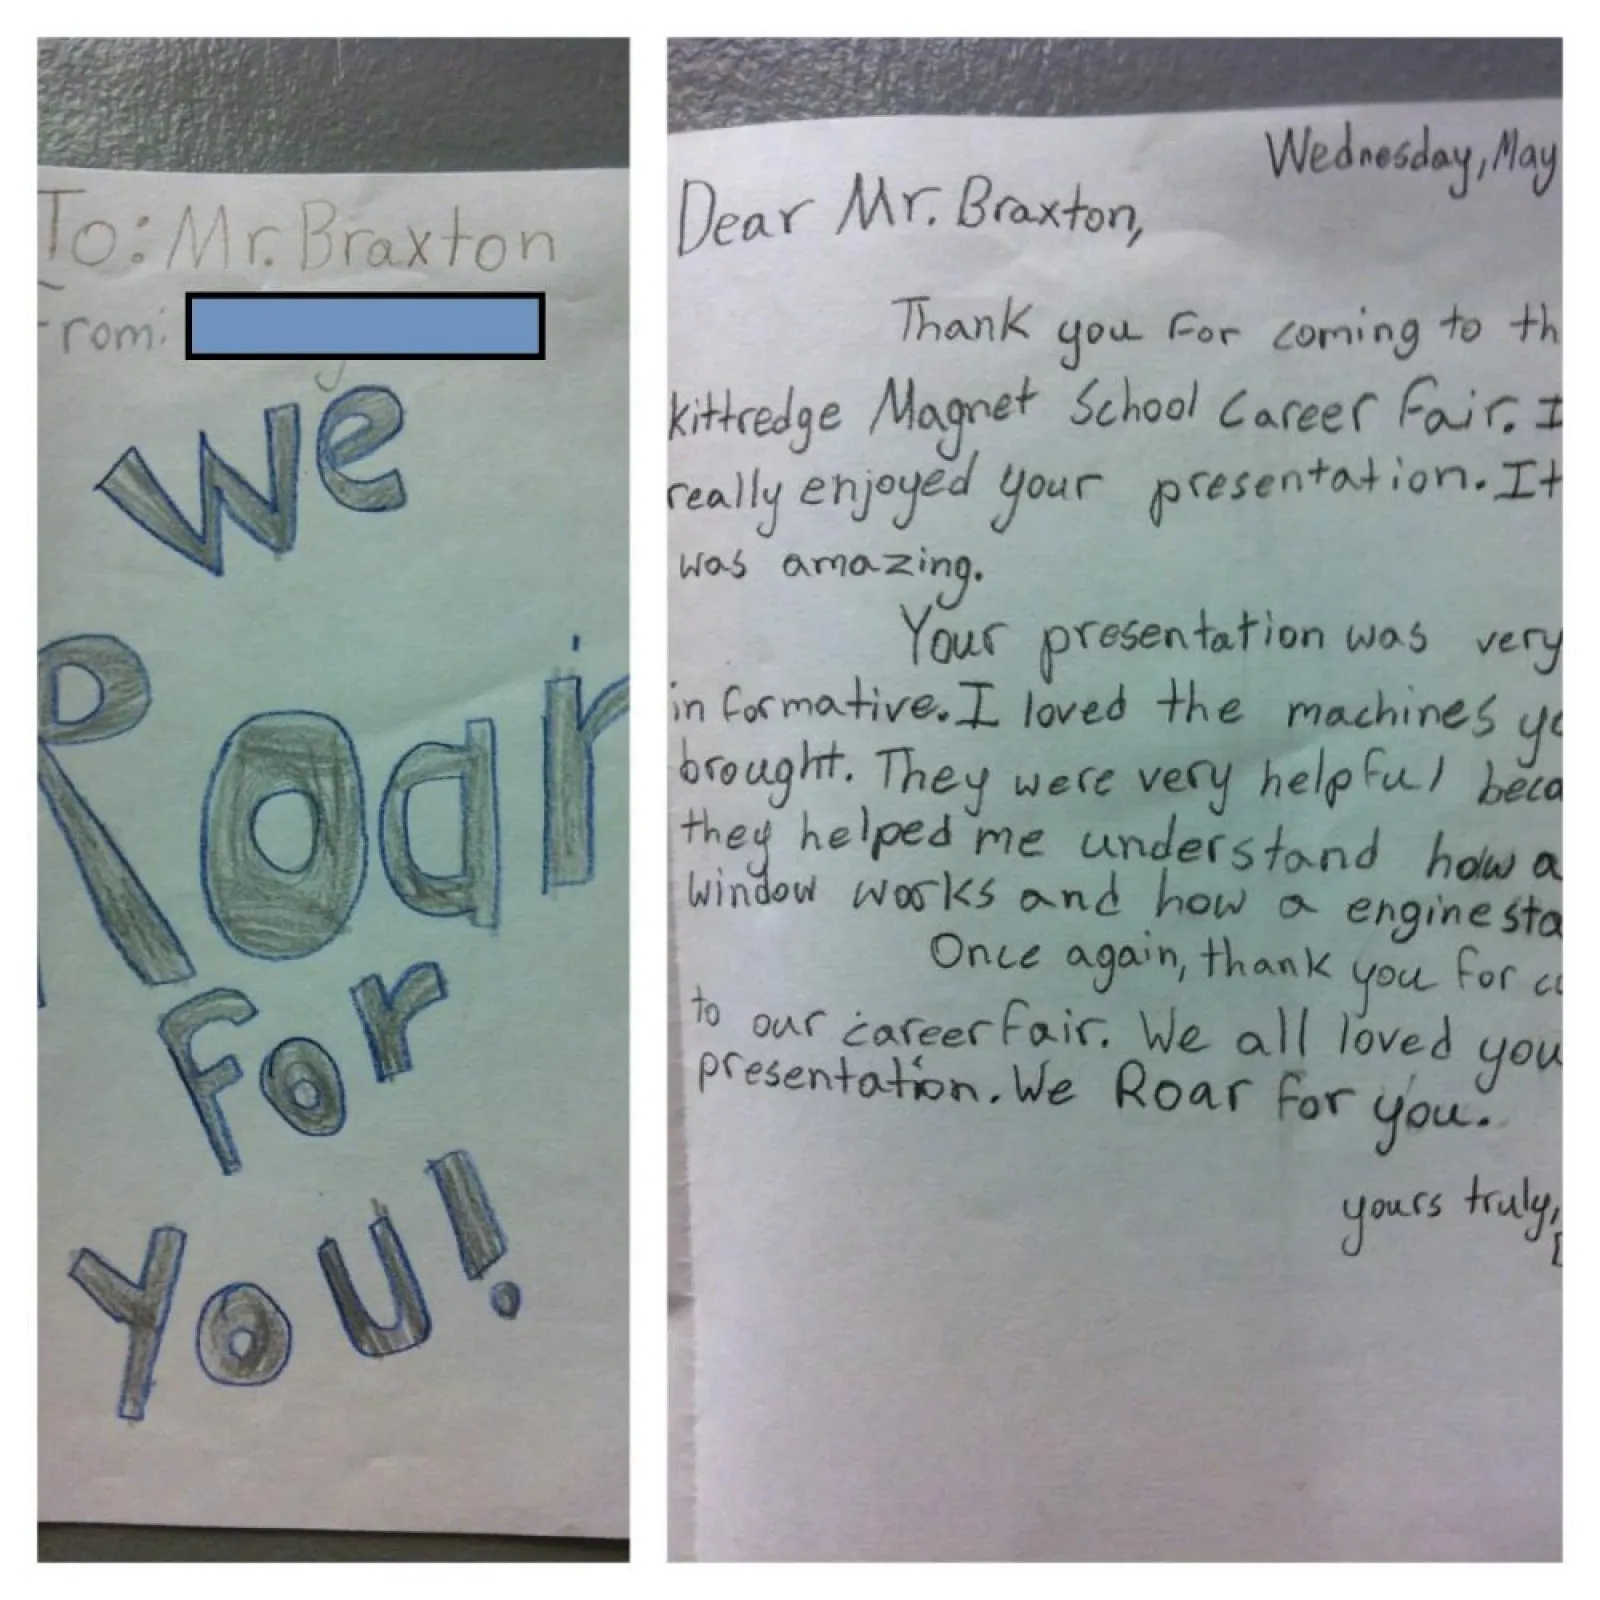 To: Mr. Braxton
From:
We
Roar
For
You!
Wednesday, May
Dear Mr. Braxton,
Thank you For coming to th
Kittredge Magnet School Career Fair. I
really enjoyed your presentation. It
was amazing.
Your presentation was very
informative. I loved the machines yo
brought. They were very helpful beca
they helped me understand how a
window works and how a engine sta
Once again, thank you For co
to our career fair. We all loved you
presentation. We Roar for you.
yours truly,